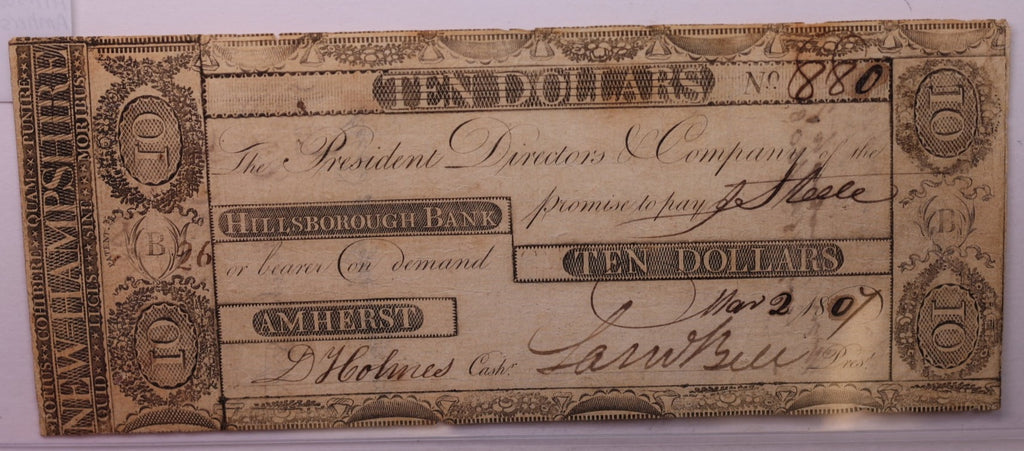 TEN DOLLARS No. 880
The President Directors & Company of the
HILLSBOROUGH BANK promise to pay J Steele
or bearer on demand TEN DOLLARS
AMHERST Mar 2 1807
D Holmes Cashr. Saml Bell Prest.
COTIUS COHIBRE QUAM PUNIRE
NEW HAMPSHIRE
QUID LEGES SINE MORIBUS
10
B
26
10
10
B
10